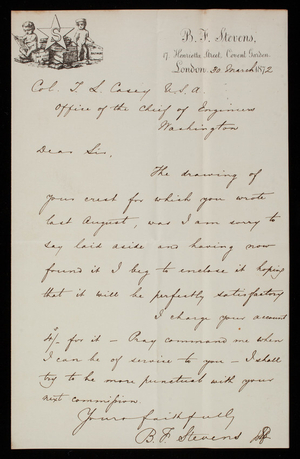 B. F. Stevens,
17 Henrietta Street, Covent Garden.
London. 30 March 1872
Col. T. L. Casey U.S.A.
Office of the Chief of Engineers
Washington
Dear Sir,
The drawing of
your crest for which you wrote
last August, was I am sorry to
say laid aside and having now
found it I beg to enclose it hoping
that it will be perfectly satisfactory
I charge your account
4/- for it – Pray command me when
I can be of service to you – I shall
try to be more punctual with your
next commission.
Yours faithfully
B. F. Stevens